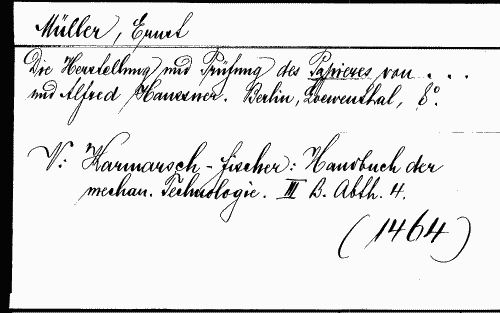 Müller, Ernst
Die Herstellung und Prüfung des Papieres von . . .
und Alfred Haussner. Berlin, Loewenthal, 8°.
V: Karmarsch - Fischer: Handbuch der
mechan. Technologie. III B. Abth. 4.
(1464)